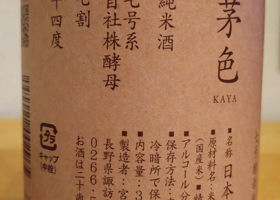 茅色
KAYA
純米酒
七号系
自社株酵母
七割
十四度
■名称 日本
■原材料名:米
(国産米)
■アルコール分
■保存方法:
冷暗所で保
■内容量:
■製造者:宮
長野県諏訪
0266-5
お酒は二十歳
プラ
キャップ
(中栓)